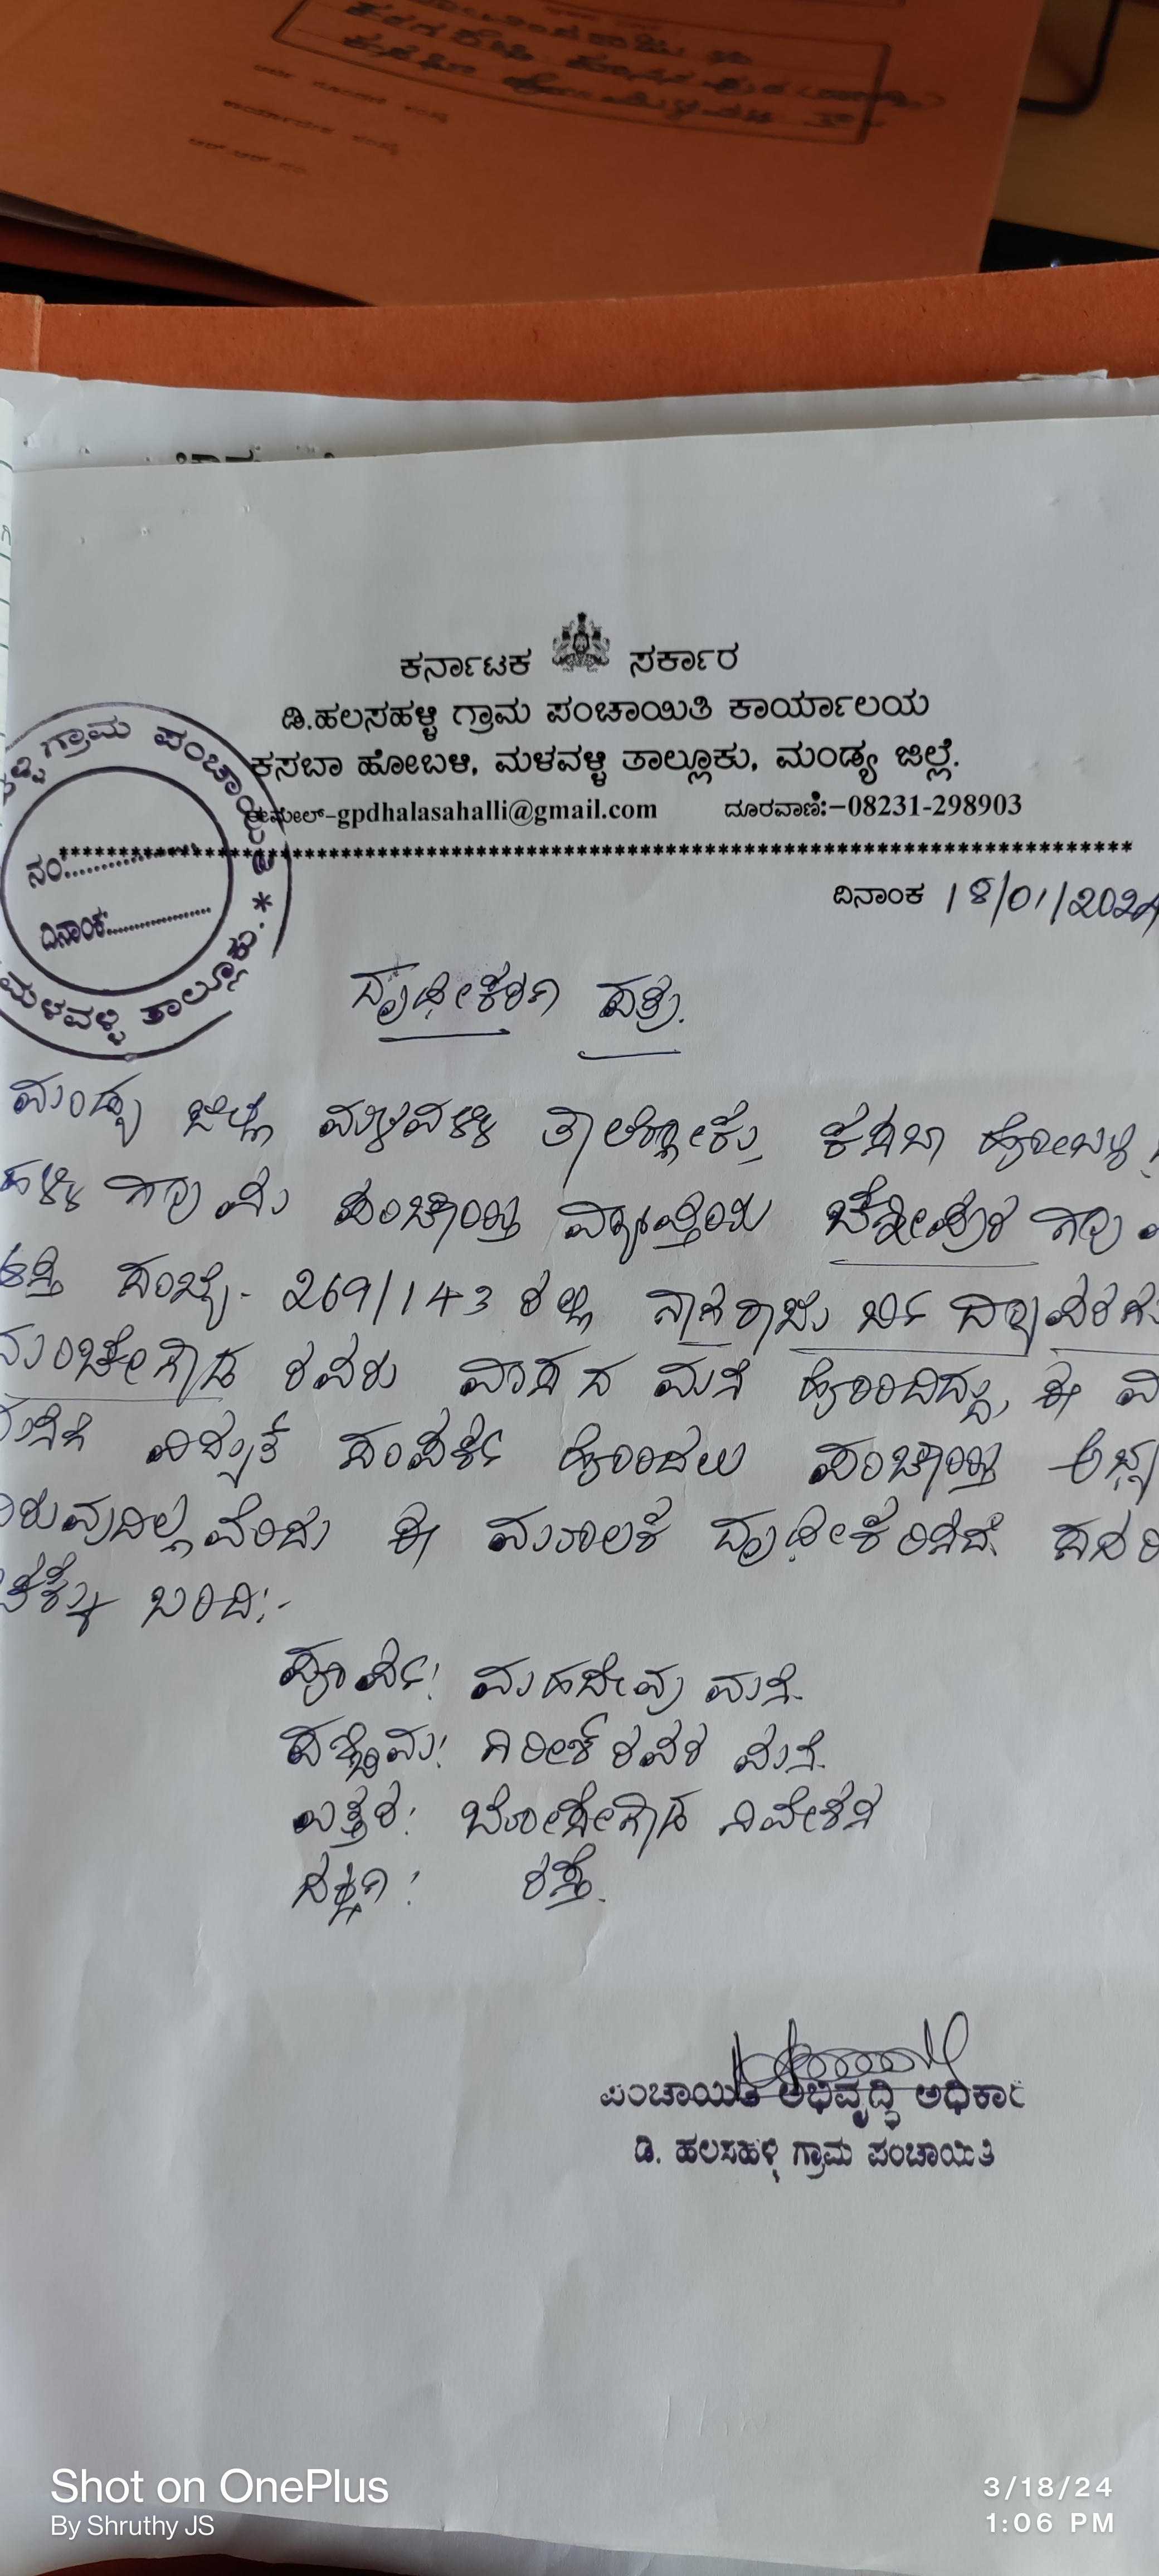 ಕರ್ನಾಟಕ ಸರ್ಕಾರ
ಡಿ.ಹಲಸಹಳ್ಳಿ ಗ್ರಾಮ ಪಂಚಾಯಿತಿ ಕಾರ್ಯಾಲಯ
ಕಸಬಾ ಹೋಬಳಿ, ಮಳವಳ್ಳಿ ತಾಲ್ಲೂಕು, ಮಂಡ್ಯ ಜಿಲ್ಲೆ.
ಈಮೇಲ್-gpdhalasahalli@gmail.com ದೂರವಾಣಿ:-08231-298903
ಗ್ರಾಮ ಪಂಚಾಯಿತಿ
ನಂ
ದಿನಾಂಕ
ಮಳವಳ್ಳಿ ತಾಲ್ಲೂಕು.
ದಿನಾಂಕ 18/01/2024
ದೃಢೀಕರಣ ಪತ್ರ.
ಮಂಡ್ಯ ಜಿಲ್ಲೆ ಮಳವಳ್ಳಿ ತಾಲ್ಲೋಕು, ಕಸಬಾ ಹೋಬಳಿ
ಹಳ್ಳಿ ಗ್ರಾಮ ಪಂಚಾಯ್ತಿ ವ್ಯಾಪ್ತಿಯ
ಸಂಖ್ಯೆ- 269/143 ರಲ್ಲಿ ನಾಗರಾಜು ಬಿನ್
ಮಂಚೇಗೌಡ ರವರು ವಾಸದ ಮನೆ ಹೊಂದಿದ್ದು, ಈ
ವಿದ್ಯುತ್ ಸಂಪರ್ಕ ಹೊಂದಲು ಪಂಚಾಯ್ತಿ
ವೆಂದು ಈ ಮೂಲಕ ದೃಢೀಕರಿಸಿದೆ.
ಚೆಕ್ಕು ಬಂದಿ:-
ಪೂರ್ವ: ಮಹದೇವು ಮನೆ.
ಪಶ್ಚಿಮ: ಗಿರೀಶ್ ರವರ ಮನೆ.
ಉತ್ತರ: ಬೋರೇಗೌಡ ನಿವೇಶನ
ದಕ್ಷಿಣ: ರಸ್ತೆ.
ಪಂಚಾಯಿತಿ ಅಭಿವೃದ್ಧಿ ಅಧಿಕಾರಿ
ಡಿ. ಹಲಸಹಳ್ಳಿ ಗ್ರಾಮ ಪಂಚಾಯಿತಿ
Shot on OnePlus
By Shruthy JS
3/18/24
1:06 PM